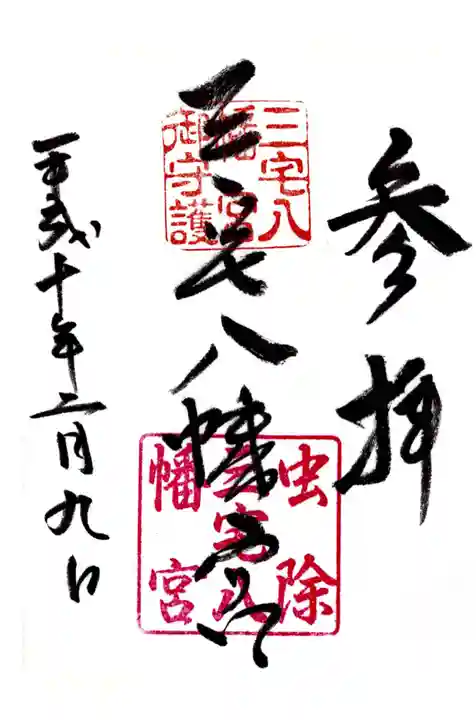 参拝
三宅八幡宮
三宅八幡宮御守護
虫除
三宅八
幡宮
平成十年二月九日